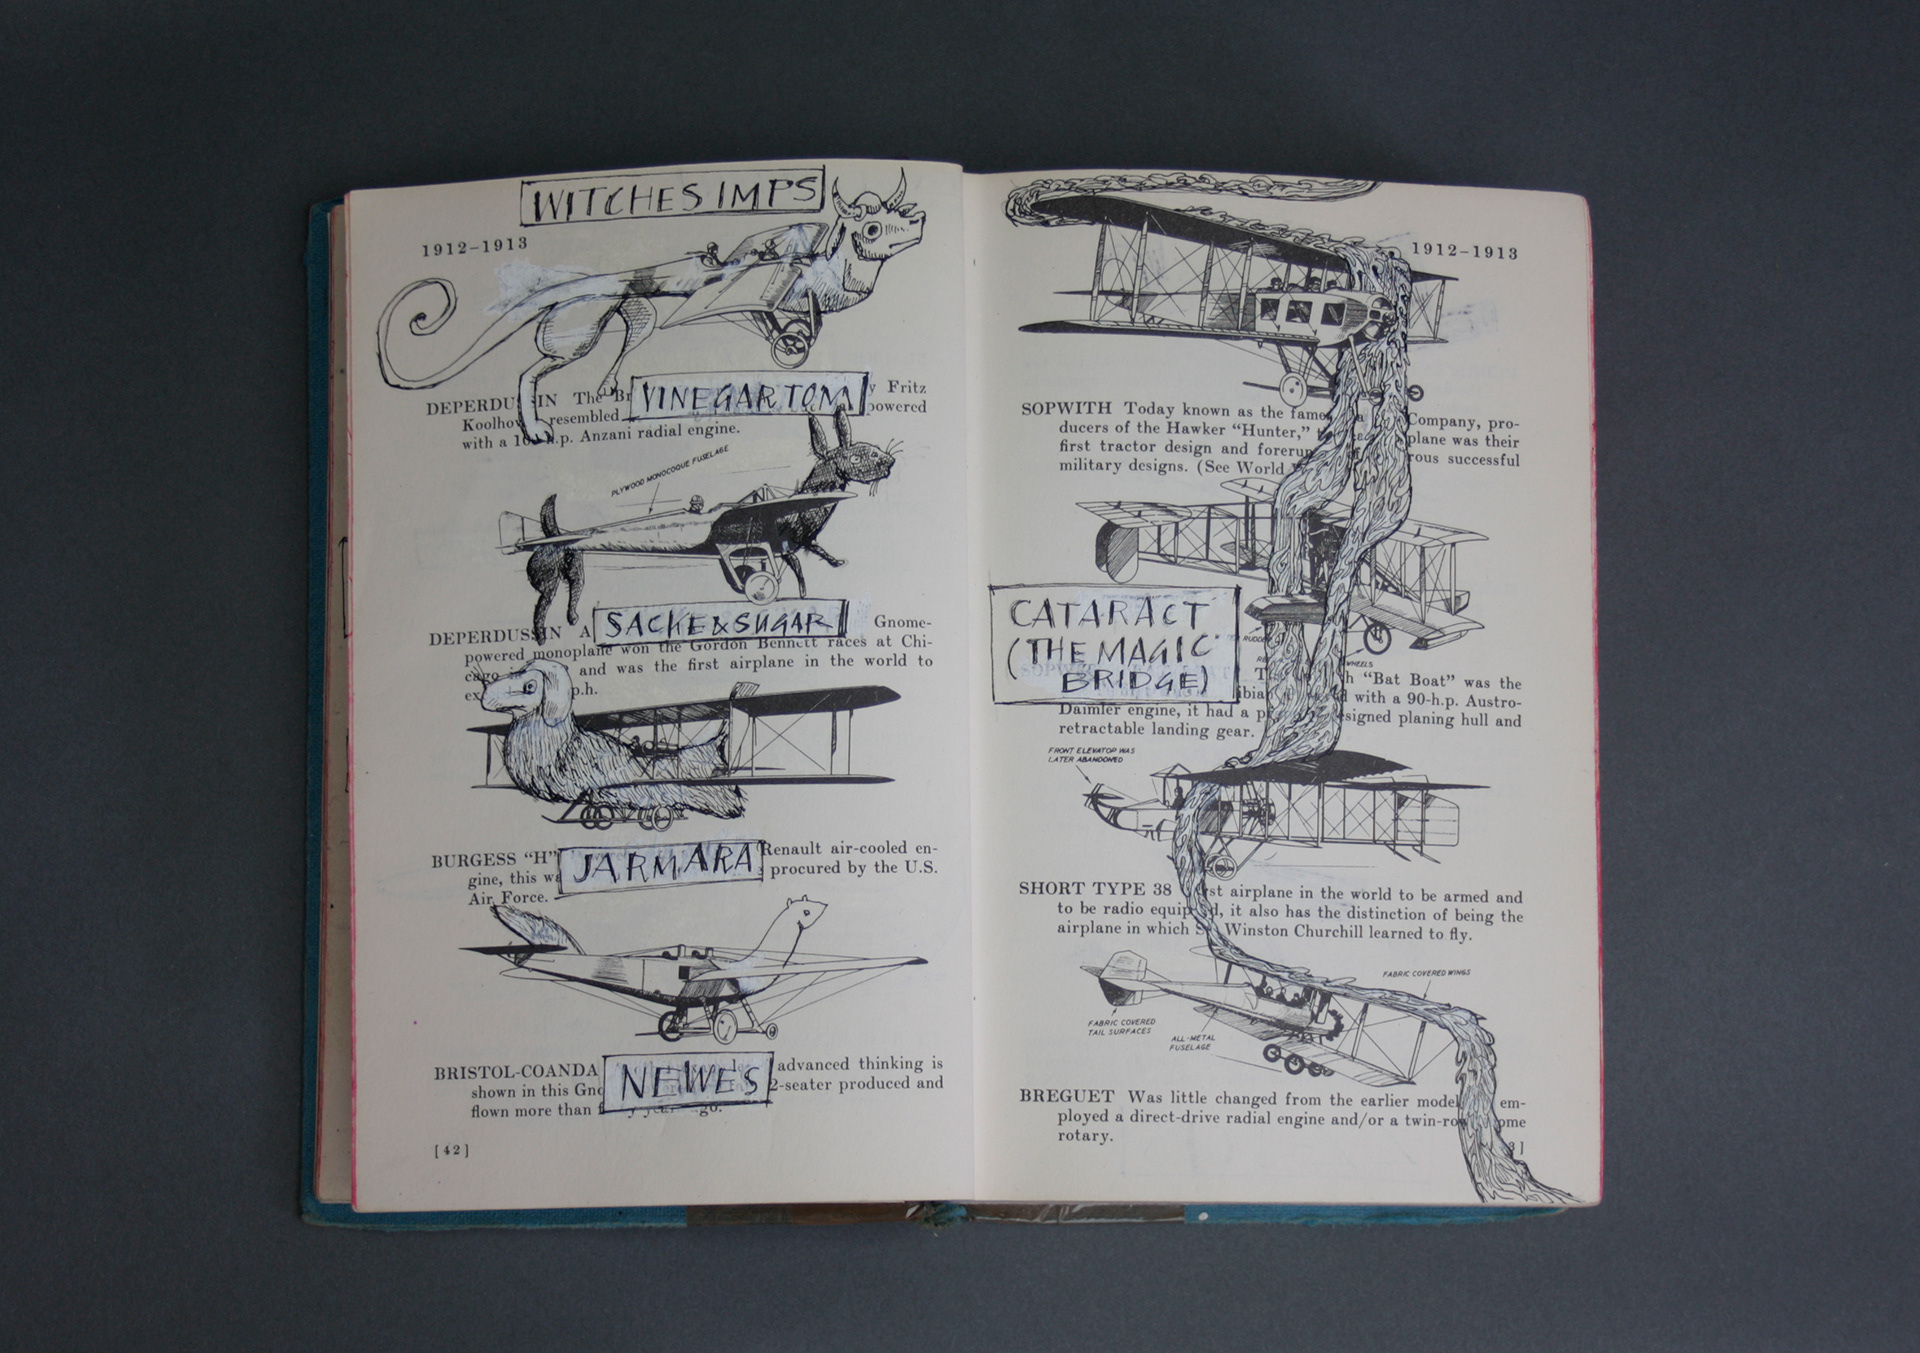 WITCHES IMPS
1912–1913
DEPERDUSSIN The Br VINEGAR TOM y Fritz
Koolhov resembled powered
with a 100 h.p. Anzani radial engine.
PLYWOOD MONOCOQUE FUSELAGE
DEPERDUSSIN A SACKE & SUGAR Gnome-
powered monoplane won the Gordon Bennett races at Chi-
cago and was the first airplane in the world to
ex p.h.
BURGESS “H” JARMARA Renault air-cooled en-
gine, this wa procured by the U.S.
Air Force.
BRISTOL-COANDA NEWES advanced thinking is
shown in this Gno 2-seater produced and
flown more than ago.
[42]
1912–1913
SOPWITH Today known as the fame Company, pro-
ducers of the Hawker “Hunter,” plane was their
first tractor design and forerun rous successful
military designs. (See World
CATARACT
(THE MAGIC
BRIDGE)
WHEELS
“Bat Boat” was the
with a 90-h.p. Austro-
Daimler engine, it had a signed planing hull and
retractable landing gear.
FRONT ELEVATOR WAS
LATER ABANDONED
SHORT TYPE 38 airplane in the world to be armed and
to be radio equipped, it also has the distinction of being the
airplane in which Winston Churchill learned to fly.
FABRIC COVERED WINGS
FABRIC COVERED
TAIL SURFACES
ALL-METAL
FUSELAGE
BREGUET Was little changed from the earlier model em-
ployed a direct-drive radial engine and/or a twin-row ome
rotary.
3]